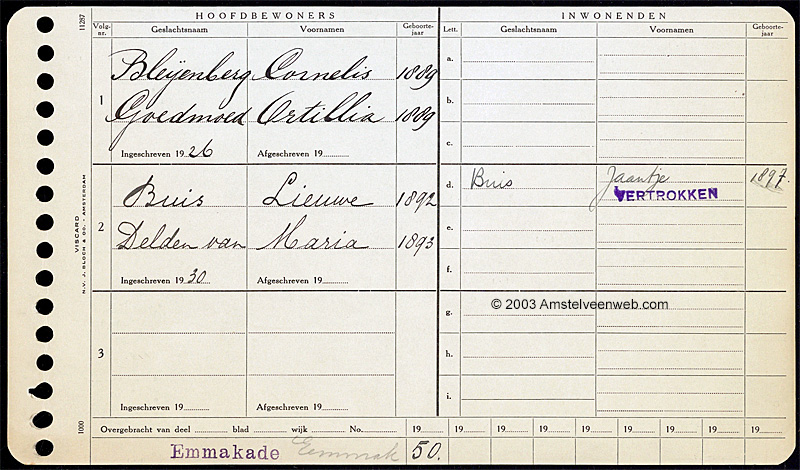 11287
HOOFDBEWONERS INWONENDEN
Volg-nr. Geslachtsnaam Voornamen Geboorte-jaar Lett. Geslachtsnaam Voornamen Geboorte-jaar
1
Bleijenberg Cornelis 1889
Goedmoed Ortillia 1889
Ingeschreven 1926 Afgeschreven 19
a.
b.
c.
2
Buis Lieuwe 1892
Delden van Maria 1893
Ingeschreven 1930 Afgeschreven 19
d. Buis Jaantje 1897.
VERTROKKEN
e.
f.
3
Ingeschreven 19 Afgeschreven 19
© 2003 Amstelveenweb.com
g.
h.
i.
VISCARD
N.V. J. BLOCH & Co. - AMSTERDAM
1000
Overgebracht van deel blad wijk No. 19 19 19 19 19 19 19 19 19
Emmakade Emmak 50.